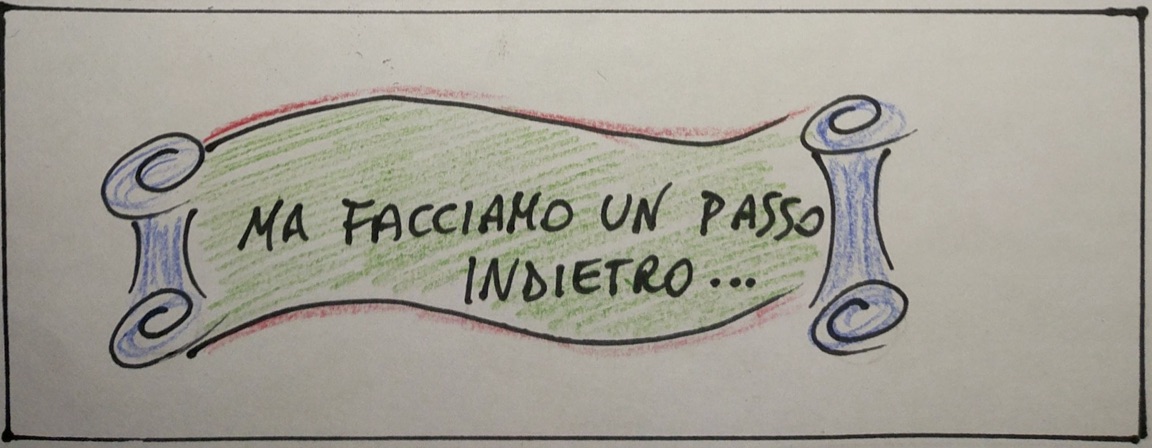 MA FACCIAMO UN PASSO
INDIETRO...